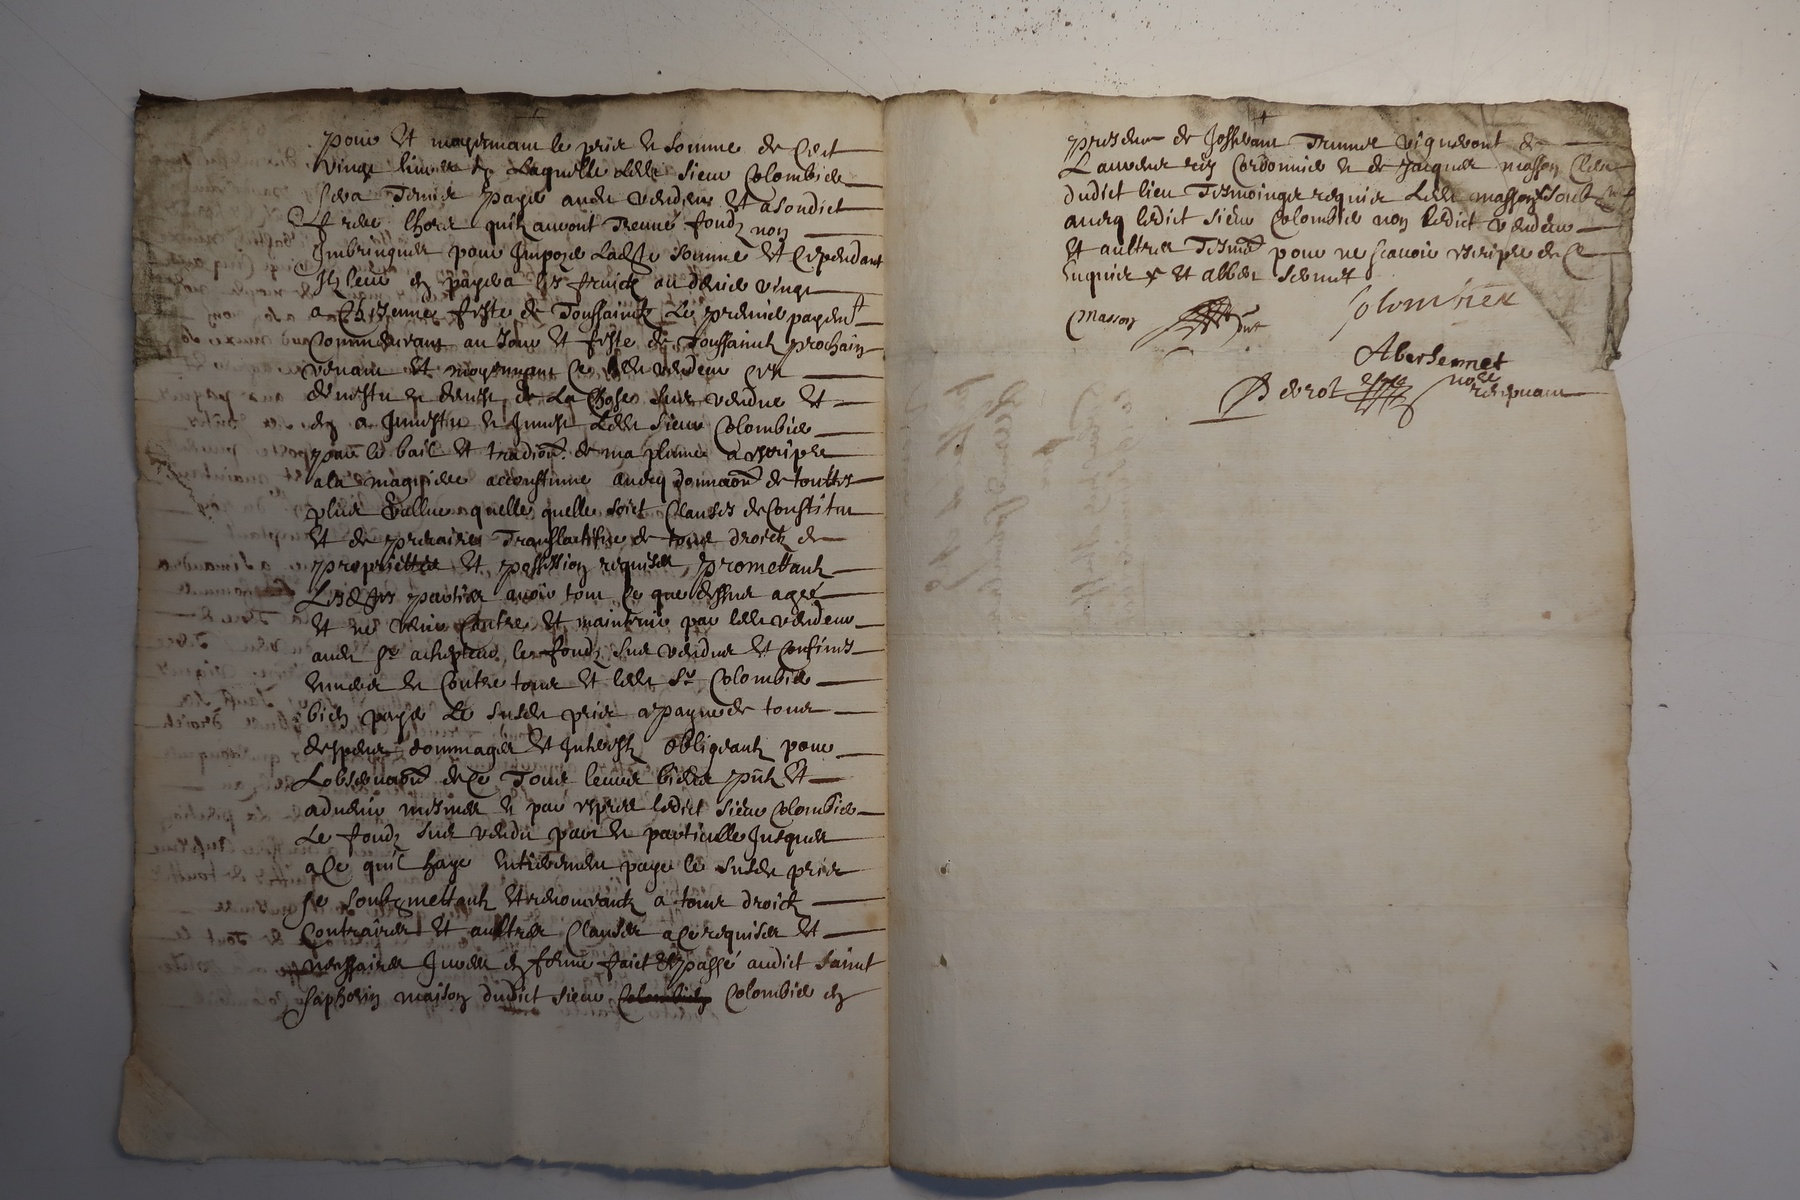 pour et moyennant le prix et somme de Cent
vingt livres Laquelle ledit sieur Colombier
sera Tenu payer audit vendeur et a sondict
lhors quilz auront Treuvé fondz non
Imbringués pour Impozer Ladte somme et Cependant
Il leur en payera les fruictz au denier vingt
a Chesenne feste de Toussainctz Le premier payemt
Commenceant au Jour et feste de Toussainctz prochain
venant et moyennant Ce ledit vendeur cest
devestu et deveist de La Chose sus vendue et
en a Investu et Inveist Ledit sieur Colombier
par le bail et tradion de ma plume a escripre
a la maniere accoustumee avecq donnaon de touttes
plus vallue quelle quelle soict Clauses de Constitu
et de precaires Translactifve de tous droictz de
proprietté et possession requises, promettantz
Lesdites parties avoir tout Ce que dessus agreé
et ne venir Contre et maintenir par ledit vendeur
audit sr achepteur, les fondz sus vendus et Confinés
envers et Contre tous et ledit Sr Colombier
bien payer Le susdit prix a payne de tous
despens dommages et Interestz obligeantz pour
Lobservaon de Ce Tous leurs biens pntz et
advenir mesmes et par expres ledict sieur Colombier
Le fondz sus vendu par et particullier Jusques
a Ce quil haye entierement payé le susdit prix
se soubzmettantz et renonceantz a tous droictz
Contraires et aultres Clauses a Ce requises et
necessaires Jurees en forme faict et passé audict saint
saphorin maison dudict sieur Colombier en
presence de Tennet vigneront de
Lauseur Cordonnier et de Jacques masson
dudict lieu Tesmoings requis Ledit masson soubz
avecq ledict sieur Colombier non ledict vendeur
et aultre Tesmo pour ne scavoir escripre de Ce
Enquis et
Masson
Colombier
Aberjennet
Derot
nore
recepvant